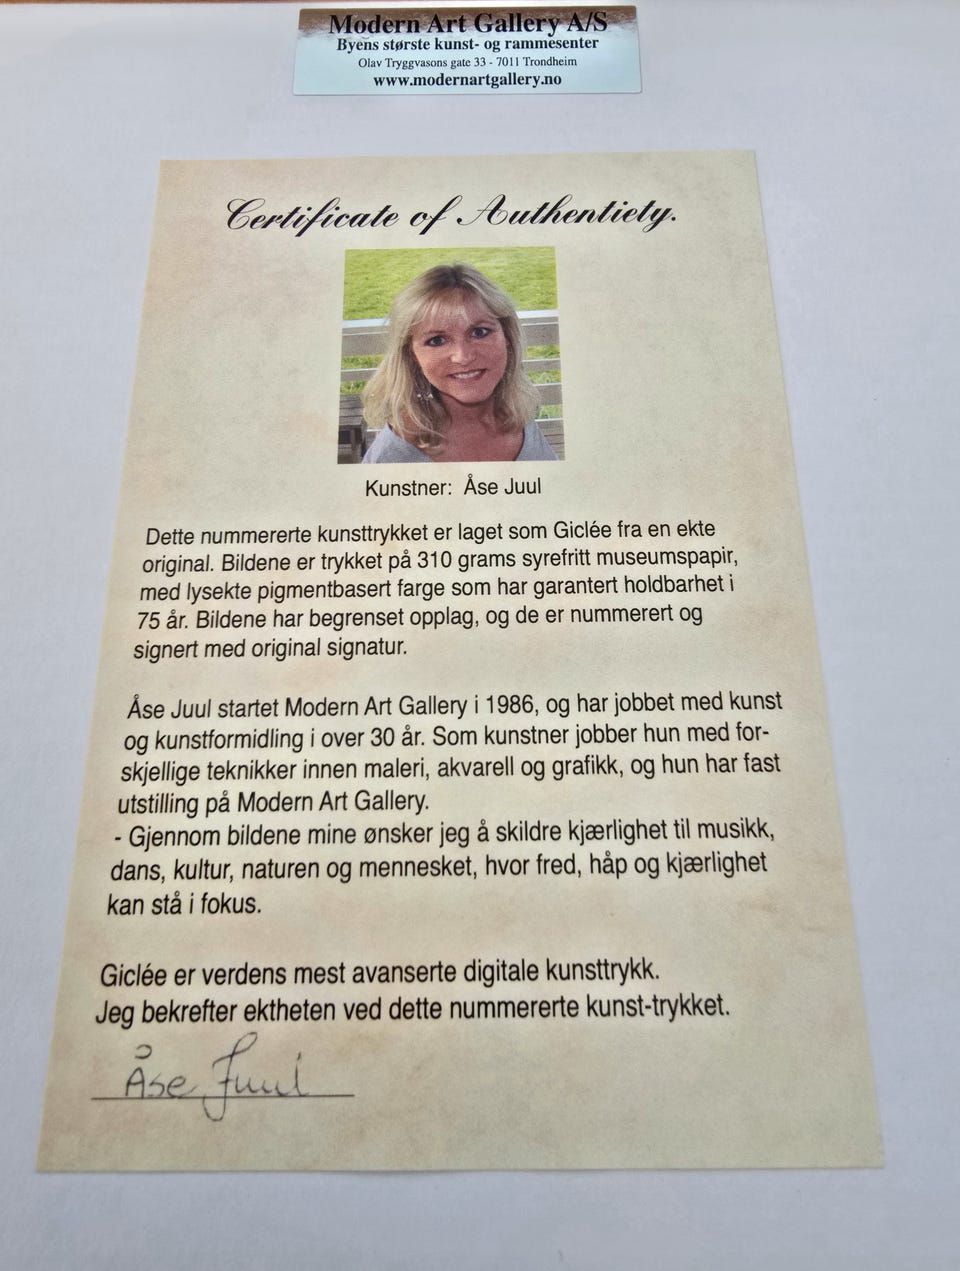 Modern Art Gallery A/S
Byens største kunst- og rammesenter
Olav Tryggvasons gate 33 - 7011 Trondheim
www.modernartgallery.no
Certificate of Authentiety.
Kunstner: Åse Juul
Dette nummererte kunsttrykket er laget som Giclée fra en ekte
original. Bildene er trykket på 310 grams syrefritt museumspapir,
med lysekte pigmentbasert farge som har garantert holdbarhet i
75 år. Bildene har begrenset opplag, og de er nummerert og
signert med original signatur.
Åse Juul startet Modern Art Gallery i 1986, og har jobbet med kunst
og kunstformidling i over 30 år. Som kunstner jobber hun med for-
skjellige teknikker innen maleri, akvarell og grafikk, og hun har fast
utstilling på Modern Art Gallery.
- Gjennom bildene mine ønsker jeg å skildre kjærlighet til musikk,
dans, kultur, naturen og mennesket, hvor fred, håp og kjærlighet
kan stå i fokus.
Giclée er verdens mest avanserte digitale kunsttrykk.
Jeg bekrefter ektheten ved dette nummererte kunst-trykket.
Åse Juul